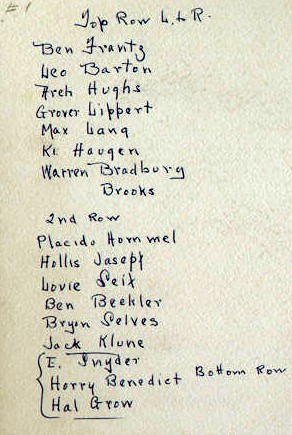 #1
Top Row L. to R.
Ben Frantz
Leo Barton
Arch Hughs
Grover Lippert
Max Lang
Ki Haugen
Warren Bradbury
Brooks
2nd Row
Placido Hommel
Hollis Jasept
Lovie Seix
Ben Beekler
Bryon Selves
Jack Klune
E. Snyder
Horry Benedict Bottom Row
Hal Grow